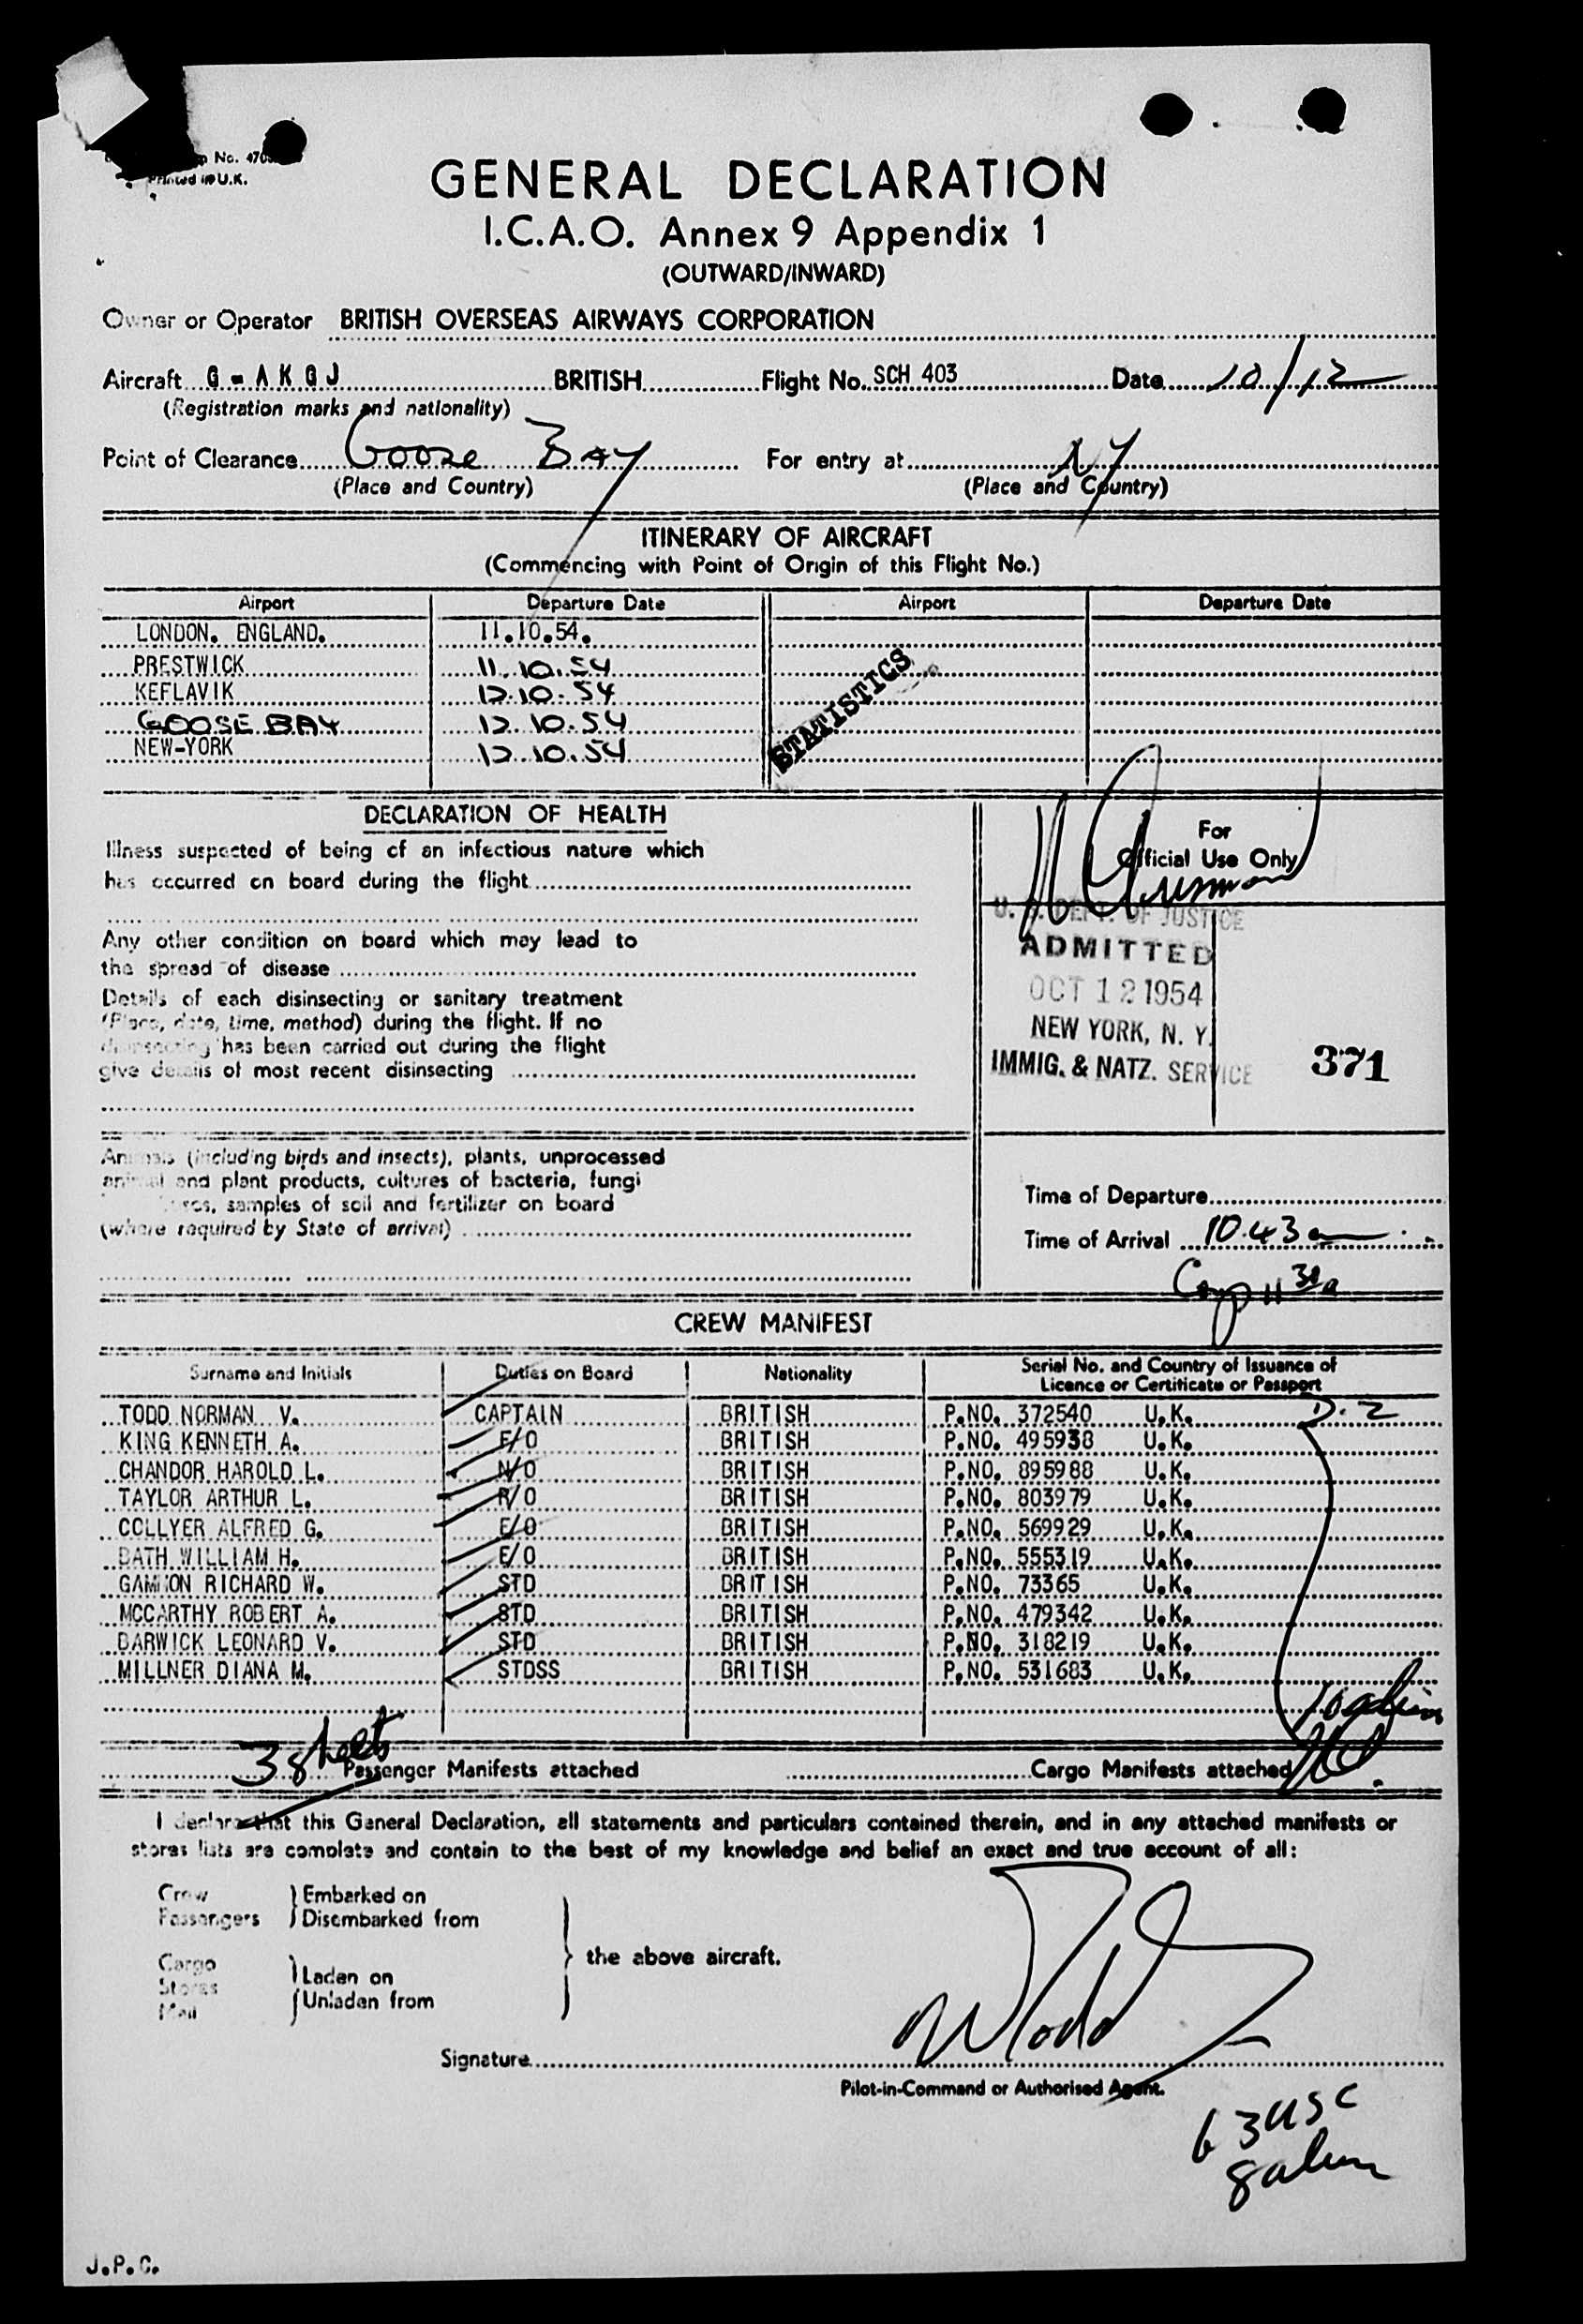 No. 470
Printed in U.K.
GENERAL DECLARATION
I.C.A.O. Annex 9 Appendix 1
(OUTWARD/INWARD)
Owner or Operator BRITISH OVERSEAS AIRWAYS CORPORATION
Aircraft G-AKGJ BRITISH Flight No. SCH 403 Date 10/12
(Registration marks and nationality)
Point of Clearance Goose BAY For entry at NY
(Place and Country) (Place and Country)
ITINERARY OF AIRCRAFT
(Commencing with Point of Origin of this Flight No.)
Airport Departure Date Airport Departure Date
LONDON. ENGLAND. 11.10.54.
PRESTWICK 11.10.54
KEFLAVIK 12.10.54
GOOSE BAY 12.10.54
NEW-YORK 12.10.54
STATISTICS
DECLARATION OF HEALTH
Illness suspected of being of an infectious nature which
has occurred on board during the flight
Any other condition on board which may lead to
the spread of disease
Details of each disinsecting or sanitary treatment
(Place, date, time, method) during the flight. If no
disinsecting has been carried out during the flight
give details of most recent disinsecting
For
Official Use Only
U. S. DEPT. OF JUSTICE
ADMITTED
OCT 12 1954
NEW YORK, N. Y.
IMMIG. & NATZ. SERVICE
371
Animals (including birds and insects), plants, unprocessed
animal and plant products, cultures of bacteria, fungi
samples of soil and fertilizer on board
(where required by State of arrival)
Time of Departure
Time of Arrival 10.43 am
Comp 11 30a
CREW MANIFEST
Surname and Initials Duties on Board Nationality Serial No. and Country of Issuance of
Licence or Certificate or Passport
TODD NORMAN V. CAPTAIN BRITISH P.NO. 372540 U.K. D-2
KING KENNETH A. F/O BRITISH P.NO. 495938 U.K.
CHANDOR HAROLD L. N/O BRITISH P.NO. 895988 U.K.
TAYLOR ARTHUR L. R/O BRITISH P.NO. 803979 U.K.
COLLYER ALFRED G. E/O BRITISH P.NO. 569929 U.K.
BATH WILLIAM H. E/O BRITISH P.NO. 555319 U.K.
GAMMON RICHARD W. STD BRITISH P.NO. 73365 U.K.
MCCARTHY ROBERT A. STD BRITISH P.NO. 479342 U.K.
BARWICK LEONARD V. STD BRITISH P.NO. 318219 U.K.
MILLNER DIANA M. STDSS BRITISH P.NO. 531683 U.K.
3 sheets Passenger Manifests attached Cargo Manifests attached
I declare that this General Declaration, all statements and particulars contained therein, and in any attached manifests or
stores lists are complete and contain to the best of my knowledge and belief an exact and true account of all:
Crew
Passengers
Embarked on
Disembarked from
Cargo
Stores
Mail
Laden on
Unladen from
the above aircraft.
Signature NVTodd
Pilot-in-Command or Authorised Agent.
63 USC
8 alien
J.P.C.